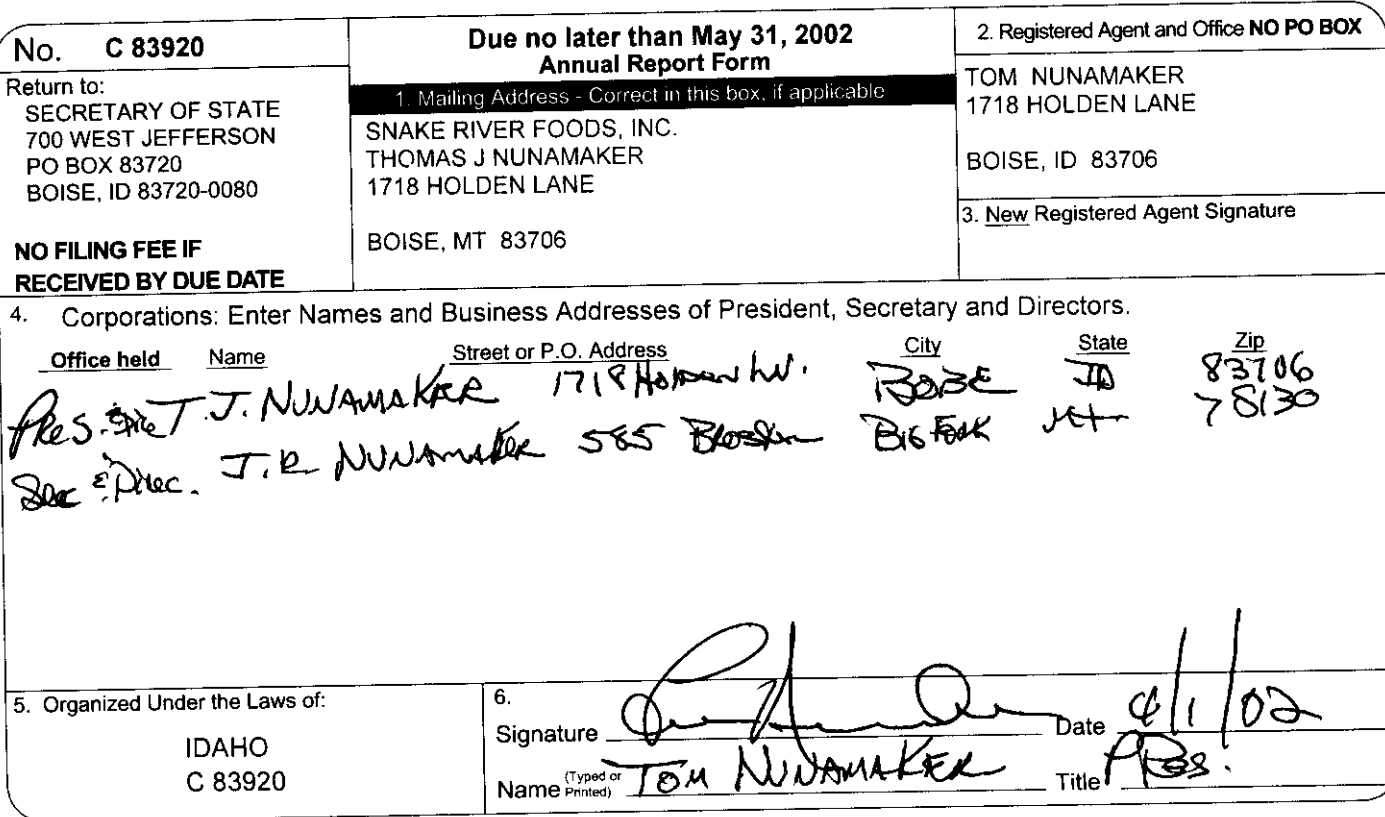 No. C 83920
Return to:
SECRETARY OF STATE
700 WEST JEFFERSON
PO BOX 83720
BOISE, ID 83720-0080
NO FILING FEE IF
RECEIVED BY DUE DATE
Due no later than May 31, 2002
Annual Report Form
1. Mailing Address - Correct in this box, if applicable
SNAKE RIVER FOODS, INC.
THOMAS J NUNAMAKER
1718 HOLDEN LANE
BOISE, MT 83706
2. Registered Agent and Office NO PO BOX
TOM NUNAMAKER
1718 HOLDEN LANE
BOISE, ID 83706
3. New Registered Agent Signature
4. Corporations: Enter Names and Business Addresses of President, Secretary and Directors.
Office held Name Street or P.O. Address City State Zip
Pres. T. J. NUNAMAKER 1718 HOLDEN LN. BOISE ID 83706
Sec & Direc. J. R NUNAMAKER 585 BIG FORK MT 78130
5. Organized Under the Laws of:
IDAHO
C 83920
6.
Signature Date 4/1/02
Name (Typed or Printed) TOM NUNAMAKER Title PRES.